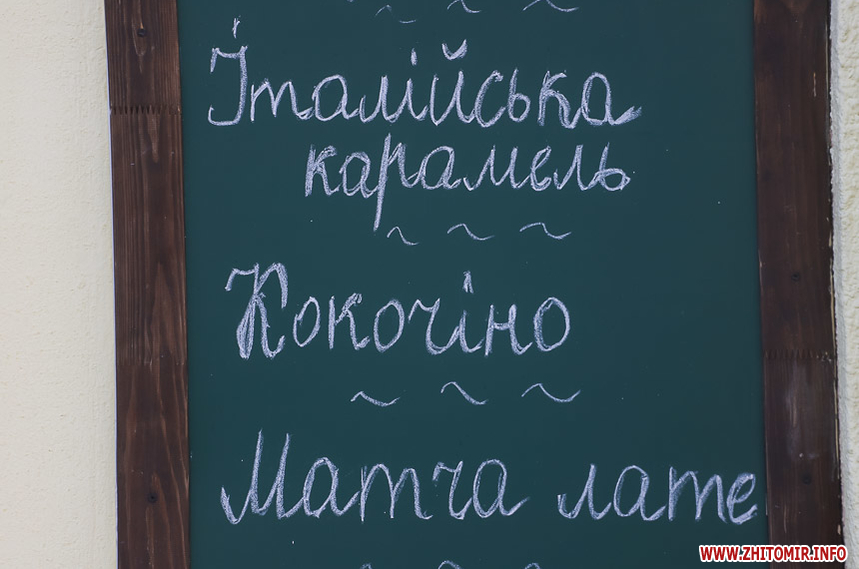 Італійська
карамель
~ ~ ~
Кокочіно
~ ~ ~
Матча лате
WWW.ZHITOMIR.INFO